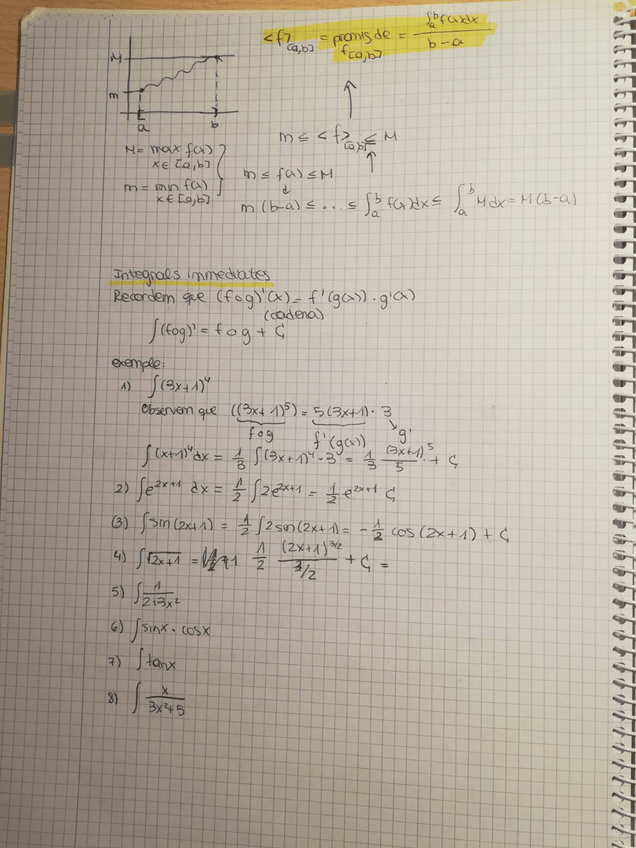 <f>[a,b] = promig de f[a,b] = ∫ₐᵇ f(x)dx / b-a
M
m
a b
m ≤ <f>[a,b] ≤ M
M = max f(x) x∈[a,b]
m = min f(x) x∈[a,b]
m ≤ f(x) ≤ M
m(b-a) ≤ ... ≤ ∫ₐᵇ f(x)dx ≤ ∫ₐᵇ M dx = M(b-a)
Integrals immediates
Recordem que (fog)'(x) = f'(g(x)) · g'(x)
(cadena)
∫(fog)' = fog + C
exemple:
1) ∫(3x+1)⁴
Observem que ((3x+1)⁵) = 5(3x+1) · 3
fog f'(g(x)) g'
∫(x+1)⁴dx = 1/3 ∫(3x+1)⁴ · 3 = 1/3 (3x+1)⁵/5 + C
2) ∫e²ˣ⁺¹ dx = 1/2 ∫2e²ˣ⁺¹ = 1/2 e²ˣ⁺¹ C
(3) ∫sin(2x+1) = 1/2 ∫2sin(2x+1) = -1/2 cos(2x+1) + C
4) ∫√2x+1 = 1/2 (2x+1)^3/2 / 3/2 + C =
5) ∫ 1/2+3x²
6) ∫sinx · cosx
7) ∫tanx
8) ∫ x/3x²+5